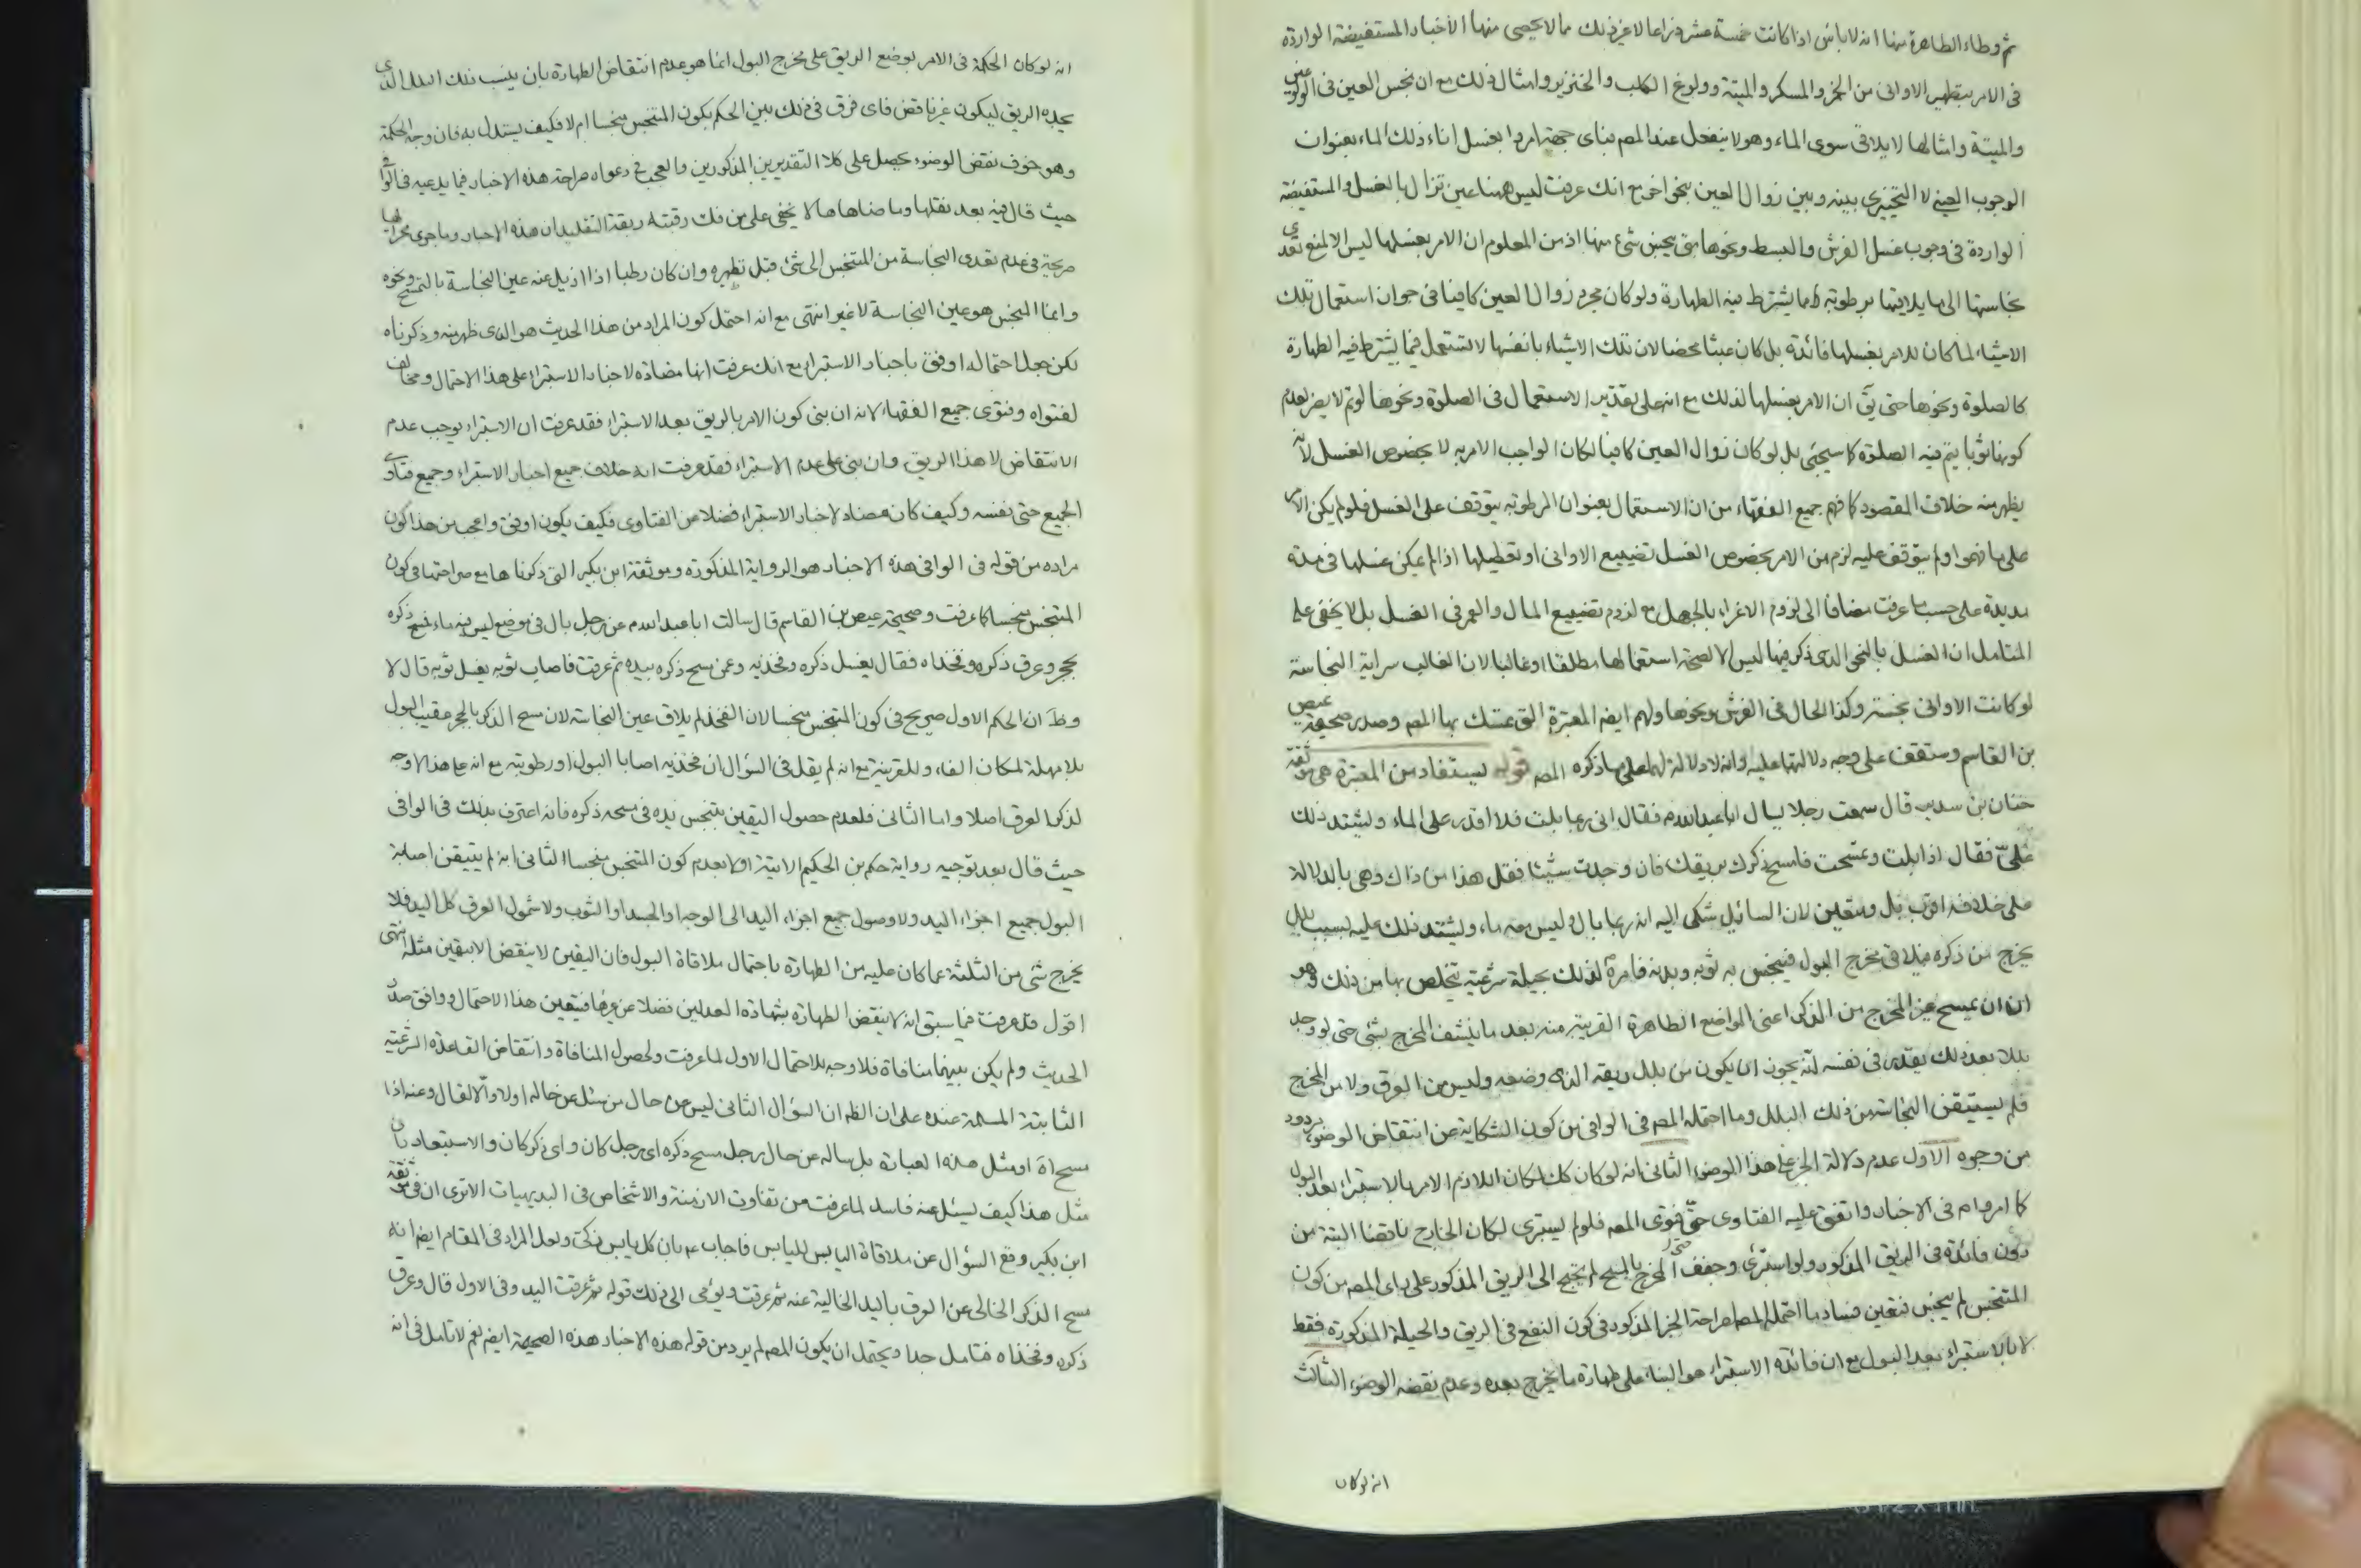 ثم وطاء الطاهرة منها انه لا باس اذا كانت خمسة عشر ذراعا لا غير ذلك مما لا يحصى منها الأخبار المستفيضة الواردة
فى الامر بتطهير الاوانى من الخمر والمسكر والميتة وولوغ الكلب والخنزير وامثال ذلك مع ان نجس العين فى الولوغ
والميتة وامثالها لا يلاقى سوى الماء وهو لا ينفعل عند المصـ فباى جهة امروا بغسل اناء ذلك الماء بعنوان
الوجوب العينى لا التخييرى بينه وبين زوال العين بنحو اخر مع انك عرفت ليس ههنا عين تزال بالغسل والمستفيضة
الواردة فى وجوب غسل الفرش والبسط ونحوها متى ينجس شئ منها اذ من المعلوم ان الامر بغسلها ليس الا لمنع تعدى
نجاستها الى ما يلاقيها برطوبة مما يشترط فيه الطهارة ولو كان مجرد زوال العين كافيا فى جواز استعمال تلك
الاشياء لما كان للامر بغسلها فائدة بل كان عبثا محضا لان تلك الاشياء بانفسها لا تستعمل فيما يشترط فيه الطهارة
كالصلوة ونحوها حتى يق ان الامر بغسلها لذلك مع انه على تقدير الاستعمال فى الصلوة ونحوها لو تم لا يضر لعدم
كونها ثوبا يتم فيه الصلوة كما سيجئى بل لو كان زوال العين كافيا لكان الواجب الامر به لا بخصوص الغسل لانه
يظهر منه خلاف المقصود كما فهم جميع الفقهاء من ان الاستعمال بعنوان الرطوبة يتوقف على الغسل فلو لم يكن الامر
على ما فهموا ولم يتوقف عليه لزم من الامر بخصوص الغسل تضييع الاوانى او تعطيلها اذا لم يمكن غسلها فى مدة
مديدة على حسب ما عرفت مضافا الى لزوم الاغراء بالجهل مع لزوم تضييع المال والعمر فى الغسل بل لا يخفى على
المتامل ان الغسل بالنحو الذى ذكر فيها ليس الا لصحة استعمالها مطلقا او غالبا لان الغالب سراية النجاسة
لو كانت الاوانى نجسة وكذا الحال فى الفرش ونحوها ولهم ايضا المعتبرة التى تمسك بها المصـ وصدر صحيحة عيص
بن القاسم وستقف على وجه دلالتها عليه وانه لا دلالة لها على ما ذكره المصـ قوله يستفاد من المعتبرة هى موثقة
حنان بن سدير قال سمعت رجلا يسال ابا عبد الله م فقال انى ربما بلت فلا اقدر على الماء ويشتد ذلك
علىّ فقال اذا بلت وتمسحت فامسح ذكرك بريقك فان وجدت شيئا فقل هذا من ذاك وهى بالدلالة
على خلافه اقرب بل ومتعين لان السائل شكى اليه انه ربما بال وليس معه ماء ويشتد ذلك عليه بسبب بلل
يخرج من ذكره فيلاقى مخرج البول فينجس به ثوبه وبدنه فامره لذلك بحيلة شرعية يتخلص بها من ذلك وهو
ان يمسح غير المخرج من الذكر اعنى المواضع الطاهرة القريبة منه بعد ما ينشف المخرج بشئ حتى لو وجد
بللا بعد ذلك يقدر فى نفسه انه يجوز ان يكون من بلل ريقه الذى وضعه وليس من العرق ولا من المخرج
فلم يستيقن النجاسة من ذلك البلل وما احتمله المصـ فى الوافى من كون الشكاية عن انتقاض الوضوء مردود
من وجوه الاول عدم دلالة الخبر على هذا الوضوء الثانى انه لو كان كك لكان اللازم الامر بالاستبراء بعد البول
كما امروا م فى الاخبار واتفق عليه الفتاوى حتى فتوى المصـ فلو لم يستبرى لكان الخارج ناقضا البتة من
دون فائدة فى الريق المذكور ولو استبرئ وجفف المخرج بالمسح لم يحتج الى الريق المذكور على راى المصـ من كون
المتنجس لم ينجس فتعين فساد ما احتمله المصـ لصراحة الخبر المذكور فى كون النفع فى الريق والحيلة المذكورة فقط
لا بالاستبراء بعد البول مع ان فائدة الاستبراء هو البناء على طهارة ما يخرج بعده وعدم نقضه الوضوء الثالث
انه لو كان
انه لو كان الحكمة فى الامر بوضع الريق على مخرج البول انما هو عدم انتقاض الطهارة بان ينسب ذلك البلل الذى
يجده الريق ليكون غير ناقض فاى فرق فى ذلك بين الحكم بكون المتنجس منجسا ام لا فكيف يستدل به فان وجه الحكمة
وهو خوف نقض الوضوء يحصل على كلا التقديرين المذكورين والعجب فى دعواه صراحة هذه الاخبار فيما يدعيه فى الوافى
حيث قال فيه بعد نقلها وما ضاهاها لا يخفى على من فك رقبته ربقة التقليد ان هذه الاخبار وما جرى مجراها
صريحة فى عدم تعدى النجاسة من المتنجس الى شئ قبل تطهيره وان كان رطبا اذا ازيل عنه عين النجاسة بالتمسح ونحوه
وانما المنجس هو عين النجاسة لا غير انتهى مع انه احتمل كون المراد من هذا الحديث هو الذى ظهر منه وذكرناه
لكن جعل احتماله اوفق باخبار الاستبراء مع انك عرفت انها مضادة لاخبار الاستبراء على هذا الاحتمال ومخالف
لفتواه وفتوى جميع الفقهاء لانه ان بنى كون الامر بالريق بعد الاستبراء فقد عرفت ان الاستبراء يوجب عدم
الانتقاض لا هذا الريق وان بنى على عدم الاستبراء فقد عرفت انه خلاف جميع اخبار الاستبراء وجميع فتاوى
الجميع حتى نفسه وكيف كان مضاد لاخبار الاستبراء فضلا عن الفتاوى فكيف يكون اوفق واعجب من هذا كون
مراده من قوله فى الوافى هذه الاخبار هو الرواية المذكورة وموثقة ابن بكير التى ذكرناها مع صراحتها فى كون
المتنجس منجسا كما عرفت وصحيحة عيص بن القاسم قال سالت ابا عبد الله م عن رجل بال فى موضع ليس فيه ماء فمسح ذكره
بحجر وعرق ذكره وفخذاه فقال يغسل ذكره وفخذيه وعن مسح ذكره بيده ثم عرقت فاصاب ثوبه يغسل ثوبه قال لا
وظ ان الحكم الاول صريح فى كون المتنجس منجسا لان الفخذ لم يلاق عين النجاسة لان مسح الذكر بالحجر عقيب البول
بلا مهلة لمكان الفاء وللقرينة مع انه لم يقل فى السؤال ان فخذيه اصابا البول او رطوبته مع انه على هذا لا وجه
لذكر العرق اصلا واما الثانى فلعدم حصول اليقين بتنجس يده فى مسحه ذكره فانه اعترف بذلك فى الوافى
حيث قال بعد توجيه رواية حكم بن الحكيم الاتية اولا بعدم كون المتنجس منجسا الثانى انه لم يتيقن اصابة
البول جميع اجزاء اليد ولا وصول جميع اجزاء اليد الى الوجه او الجسد او الثوب ولا شمول العرق كل اليد فلا
يخرج شئ من الثلثة عما كان عليه من الطهارة باحتمال ملاقاة البول فان اليقين لا ينقض الا بيقين مثله انتهى
اقول قد عرفت فيما سبق انه لا ينقض الطهارة بشهادة العدلين فضلا عن غيرها فتعين هذا الاحتمال ووافق صدر
الحديث ولم يكن بينهما منافاة فلا وجه للاحتمال الاول لما عرفت ولحصول المنافاة وانتقاض القاعدة الشرعية
الثابتة المسلمة عنده على ان الظ ان السؤال الثانى ليس عن حال من سئل عن حاله اولا والا لقال وعنه اذا
مسح اه او مثل هذه العبارة بل ساله عن حال رجل مسح ذكره اى رجل كان واى ذكر كان والاستبعاد بان
مثل هذا كيف يسئل عنه فاسد لما عرفت من تفاوت الازمنة والاشخاص فى البديهيات الا ترى ان فى موثقة
ابن بكير وقع السؤال عن ملاقاة اليابس لليابس فاجاب عم بان كل يابس ذكى ولعل المراد فى المقام ايضا انه
مسح الذكر الخالى عن العرق باليد الخالية عنه ثم عرقت ويؤمى الى ذلك قوله ثم عرقت اليد وفى الاول قال وعرق
ذكره وفخذاه فتامل جدا ويحتمل ان يكون المصـ لم يرد من قوله هذه الاخبار هذه الصحيحة ايضا نعم لا تامل فى انه